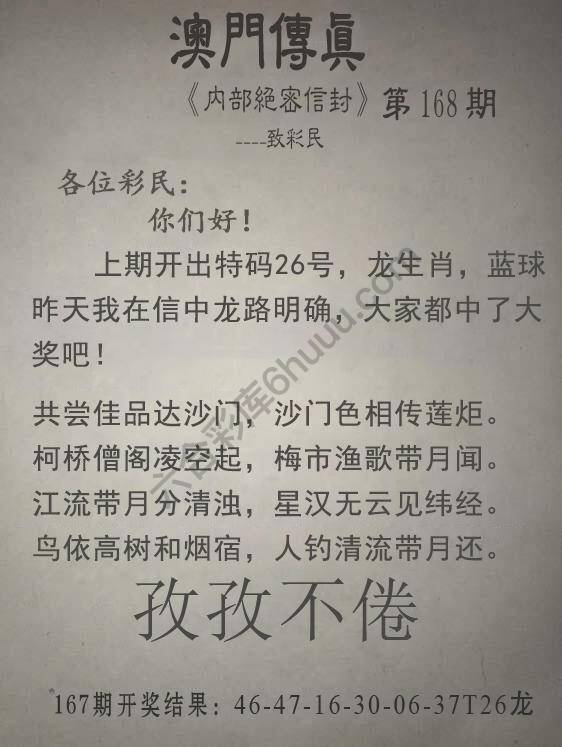 澳門傳眞
《内部絕密信封》第168期
----致彩民
各位彩民:
你们好!
上期开出特码26号，龙生肖，蓝球
昨天我在信中龙路明确，大家都中了大
奖吧!
共尝佳品达沙门，沙门色相传莲炬。
柯桥僧阁凌空起，梅市渔歌带月闻。
江流带月分清浊，星汉无云见纬经。
鸟依高树和烟宿，人钓清流带月还。
孜孜不倦
167期开奖结果: 46-47-16-30-06-37T26龙
六合彩库6huuu.com